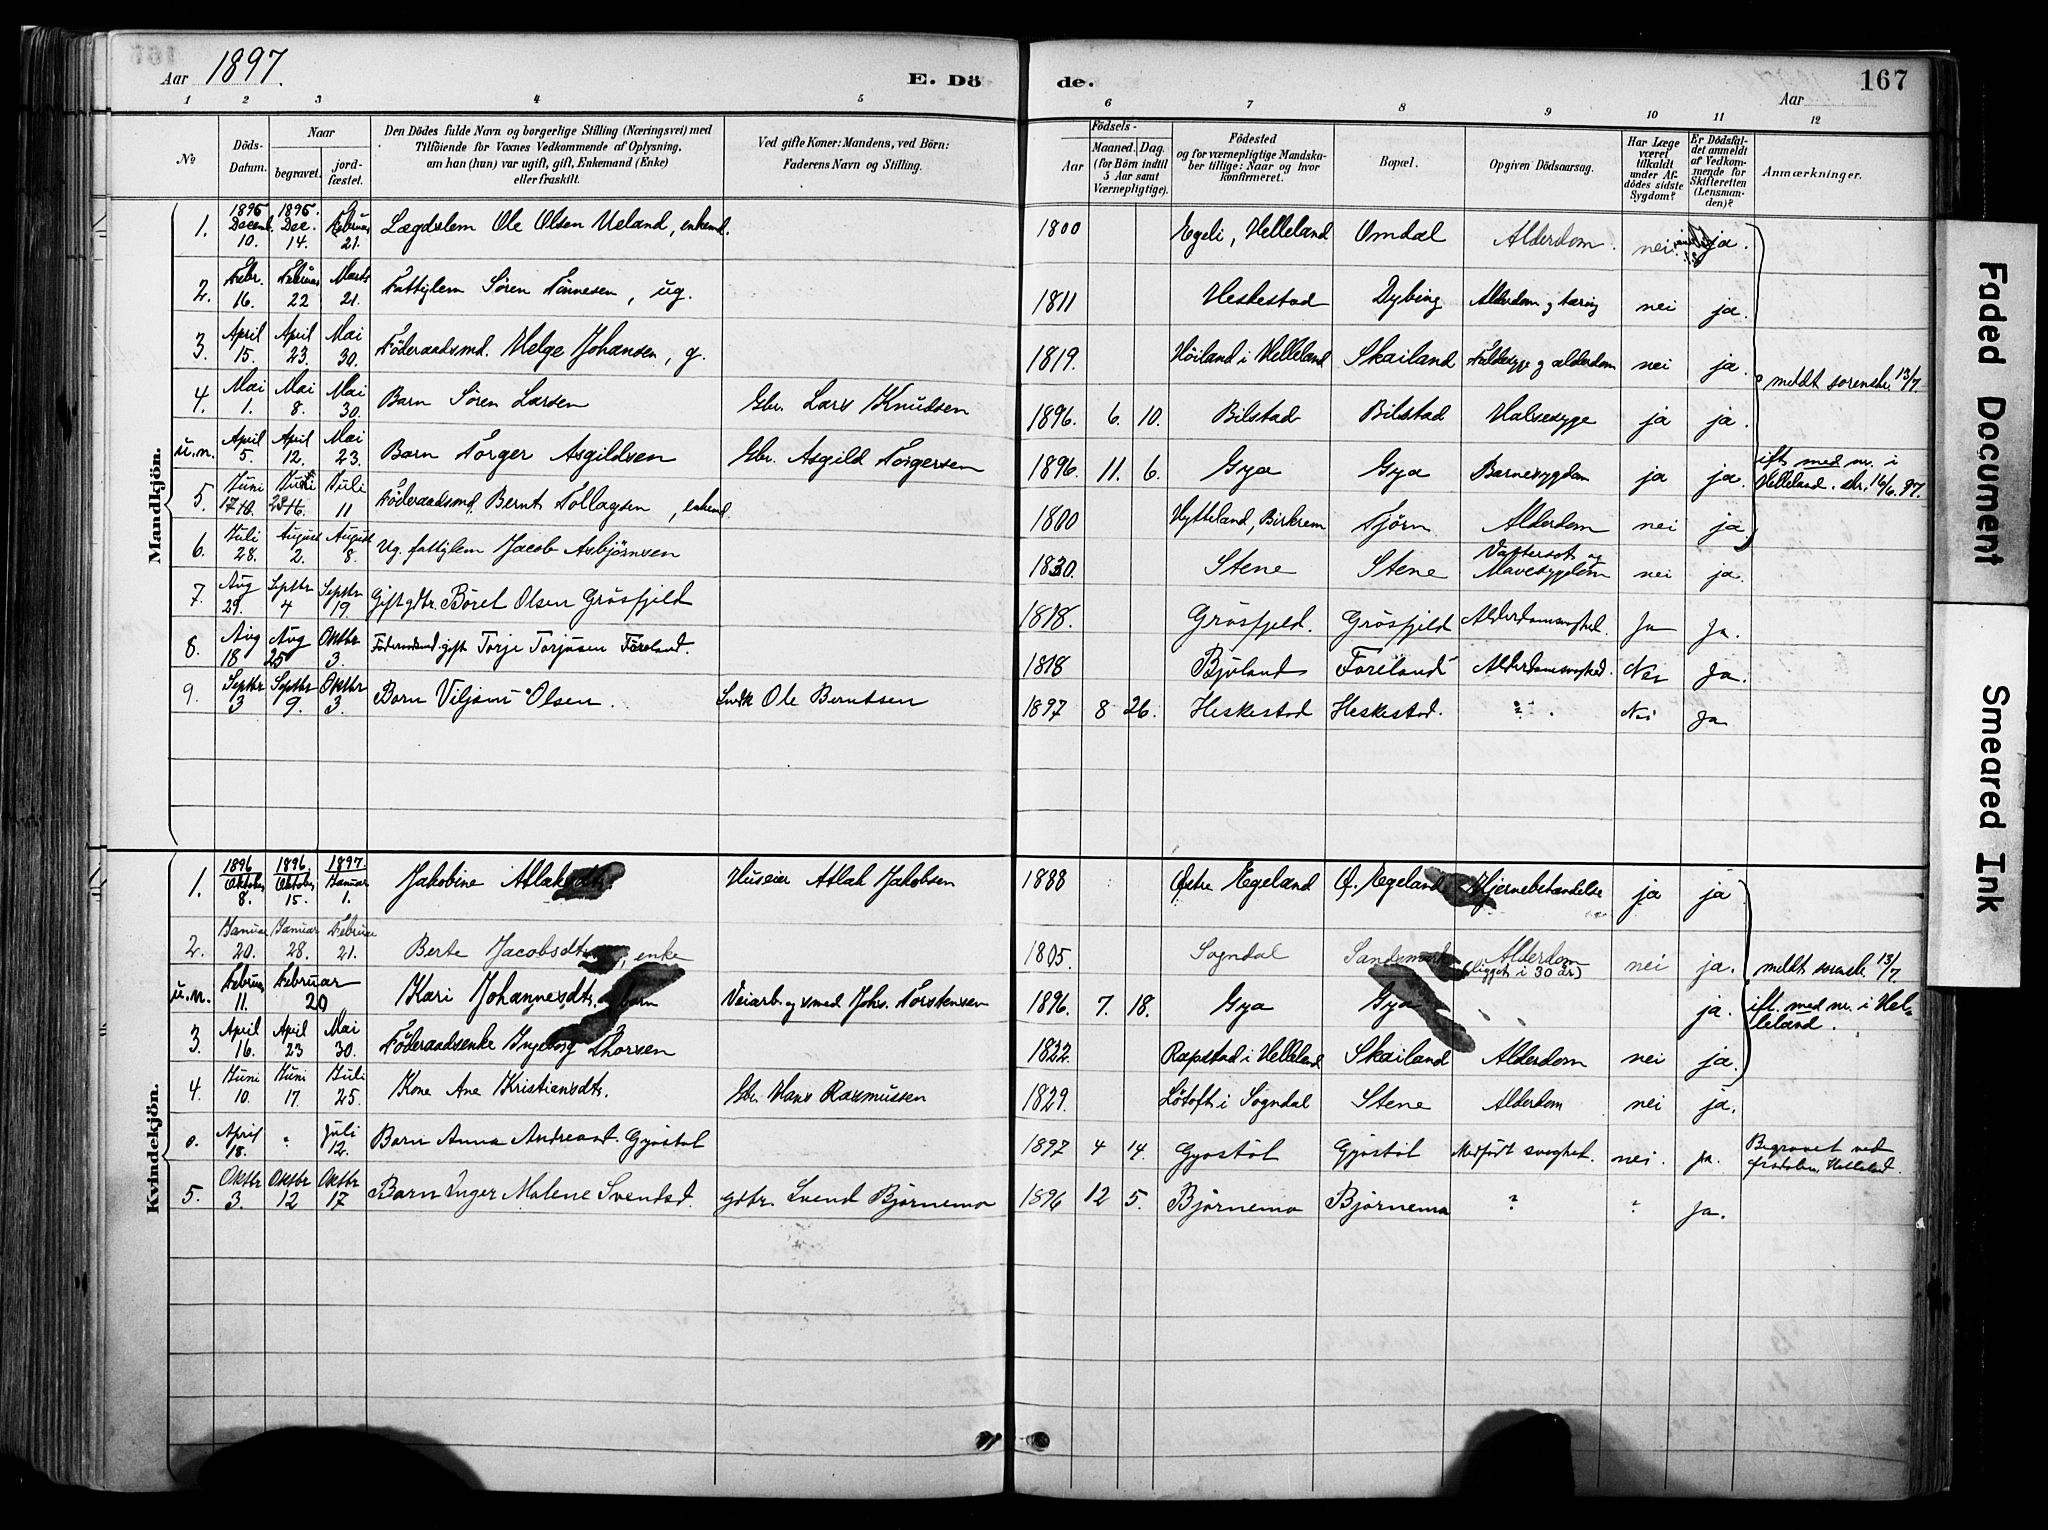 Aar 1897. E. Döde. Aar 167
1 2 3 4 5 6 7 8 9 10 11 12
No Döds-Datum. Naar begravet. jordfæstet. Den Dödes fulde Navn og borgerlige Stilling (Næringsvei) med Tilföiende for Voxnes Vedkommende af Oplysning, om han (hun) var ugift, gift, Enkemand (Enke) eller fraskilt. Ved gifte Koner: Mandens, ved Börn: Faderens Navn og Stilling. Födsels- Aar Maaned. Dag. (for Börn indtil 5 Aar samt Værnepligtige). Födested og for værnepligtige Mandskaber tillige: Naar og hvor konfirmeret. Bopæl. Opgiven Dödsaarsag. Har Læge været tilkaldt under Afdödes sidste Sygdom? Er Dödsfaldet anmeldt af Vedkommende for Skifteretten (Lensmanden)? Anmærkninger.
Mandkjön.
1. 1896 Decemb. 10. 1896. Dec. 14. Februar 21. Lægdslem Ole Olsen Ueland, enkemd. 1800 Egeli, Helleland Omdal Alderdom. nei. ja.
2. Febr. 16. Februar 22 Marts 21. Fattiglem Sören Tönnesen, ug. 1811 Heskestad Dybing Alderdom og tæring nei ja.
3. April 15. April 23. Mai 30. Föderaadsmd. Helge Johansen, g. 1819. Höiland i Helleland Skailand Faldesyge og alderdom nei ja.
meldt sorenskr. 13/7.
4. Mai 1. Mai 8. Mai 30. Barn Sören Larsen Gbr. Lars Knudsen 1896. 6. 10. Bilstad Bilstad Halssyge ja ja.
u.n. April 5. April 12. Mai 23. Barn Torger Asgildsen Gbr. Asgild Torgersen 1896. 11. 6. Gya Gya Barnesygdom ja ja. ift. med nr. i Helleland. skr. 16/6. 97.
5. Juni 17 Juli 11 Föderaadsmd. Bernt Tollagsen, enkemd. 1800 Hytteland, Birkrem Tjörn Alderdom nei ja.
6. Juli 28. August 2. August 8. Ug. fattiglem Jacob Asbjörnsen 1830. Stene Stene Vattersot og Mavesygdom nei ja.
7. Aug 29. Septbr 4 Septbr 19. Gift gdbr. Börel Olsen Grösfjeld 1818. Grösfjeld. Grösfjeld Alderdomssvaghed. Ja Ja.
8. Aug 18 Aug 25 Oktbr 3. Föderaadsmd. gift Torje Torjusen Föreland. 1818 Bjuland Föreland Alderdomssvaghed. Nei Ja.
9. Septbr 3 Septbr 9. Oktbr 3. Barn Viljam Olsen. Ole Berntsen 1897 8 26. Heskestad Heskestad. ? Nei Ja
Kvindekjön.
1. 1896 Oktober 8. 1896 Oktober 15. 1897. Januar 1. Jakobine Atlaksdtr. Huseier Atlak Jakobsen 1888 Östre Egeland Ö. Egeland Hjernebetændelse ja ja
2. Januar 20. Januar 28. Februar 21. Berte Jacobsdtr., enke 1805. Sogndal Sandsmark Alderdom (ligget i 30 år) nei ja. meldt sorenskr. 13/7.
u.n. Februar 11. Februar 20 Kari Johannesdtr. barn Veiarb. og smed Johs. Torstensen 1896. 7. 18. Gya Gya ja. ift. med nr. i Helleland.
3. April 16. April 23 Mai 30. Föderaadsenke Ingeborg Thorsen 1822. Rapstad i Helleland Skailand Alderdom nei ja.
4. Juni 10. Juni 17. Juli 25. Kone Ane Kristiansdtr. Gbr. Hans Rasmussen 1829. Lötoft i Sogndal Stene Alderdom nei ja.
o. April 18. Juli 12. Barn Anna Andreasd. Gyöstöl 1897 4 14. Gyostöl Gyöstöl Medfödt svaghed. nei. ja. Begravet ved Helleland.
5. Oktbr 3. Oktbr 12 Oktbr 17 Barn Inger Malene Svendsd. gdbr. Svend Björnemo 1896 12 5. Björnemo Björnemo ? ? Ja.
Faded Document
Smeared Ink